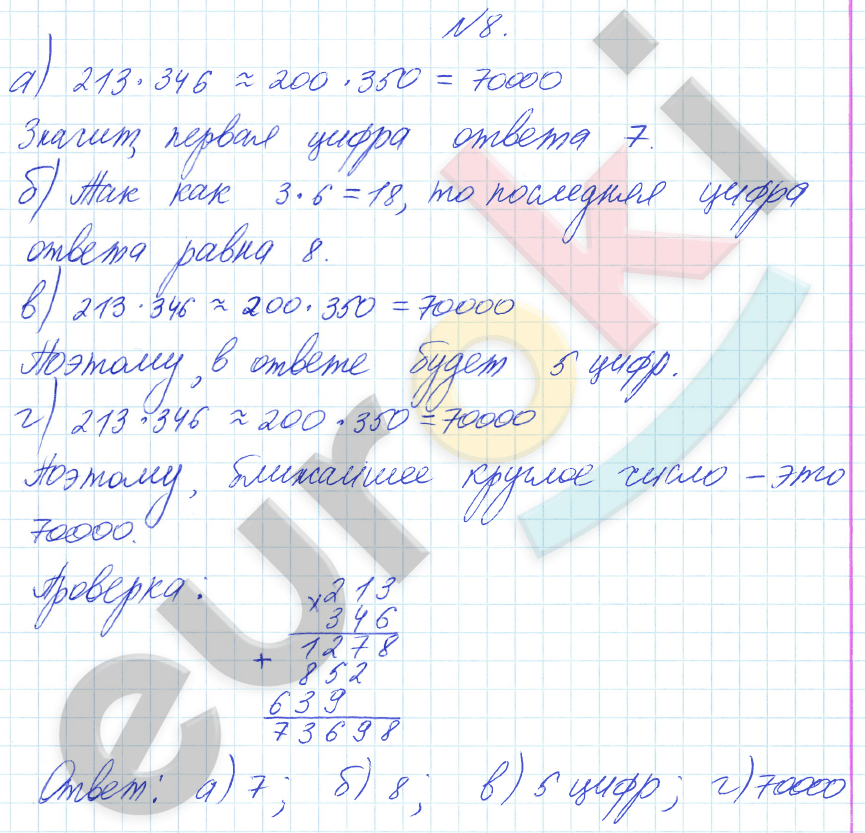 №8.
а) 213·346 ≈ 200·350 = 70000
Значит, первая цифра ответа 7.
б) Так как 3·6=18, то последняя цифра
ответа равна 8.
в) 213·346 ≈ 200·350 = 70000
Поэтому, в ответе будет 5 цифр.
г) 213·346 ≈ 200·350 = 70000
Поэтому, ближайшее круглое число – это
70000.
Проверка:
×213
346
+ 1278
852
639
73698
Ответ: а) 7; б) 8; в) 5 цифр; г) 70000
euroki